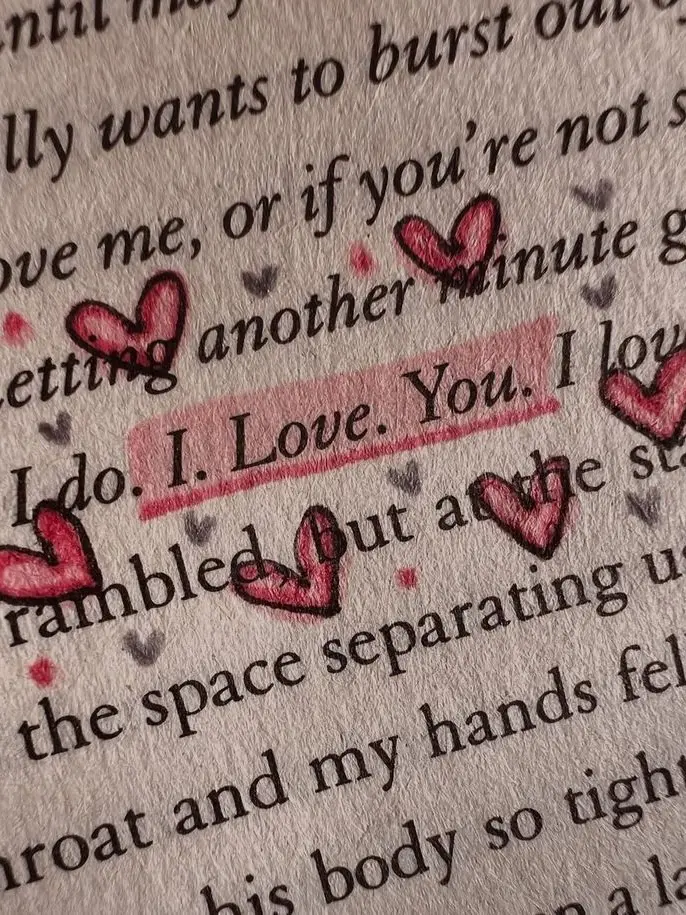 until may
lly wants to burst out
ove me, or if you're not s
etting another minute g
I do. I. Love. You. I lov
rambled, but at the sta
the space separating u
hroat and my hands fel
his body so tight
n a la